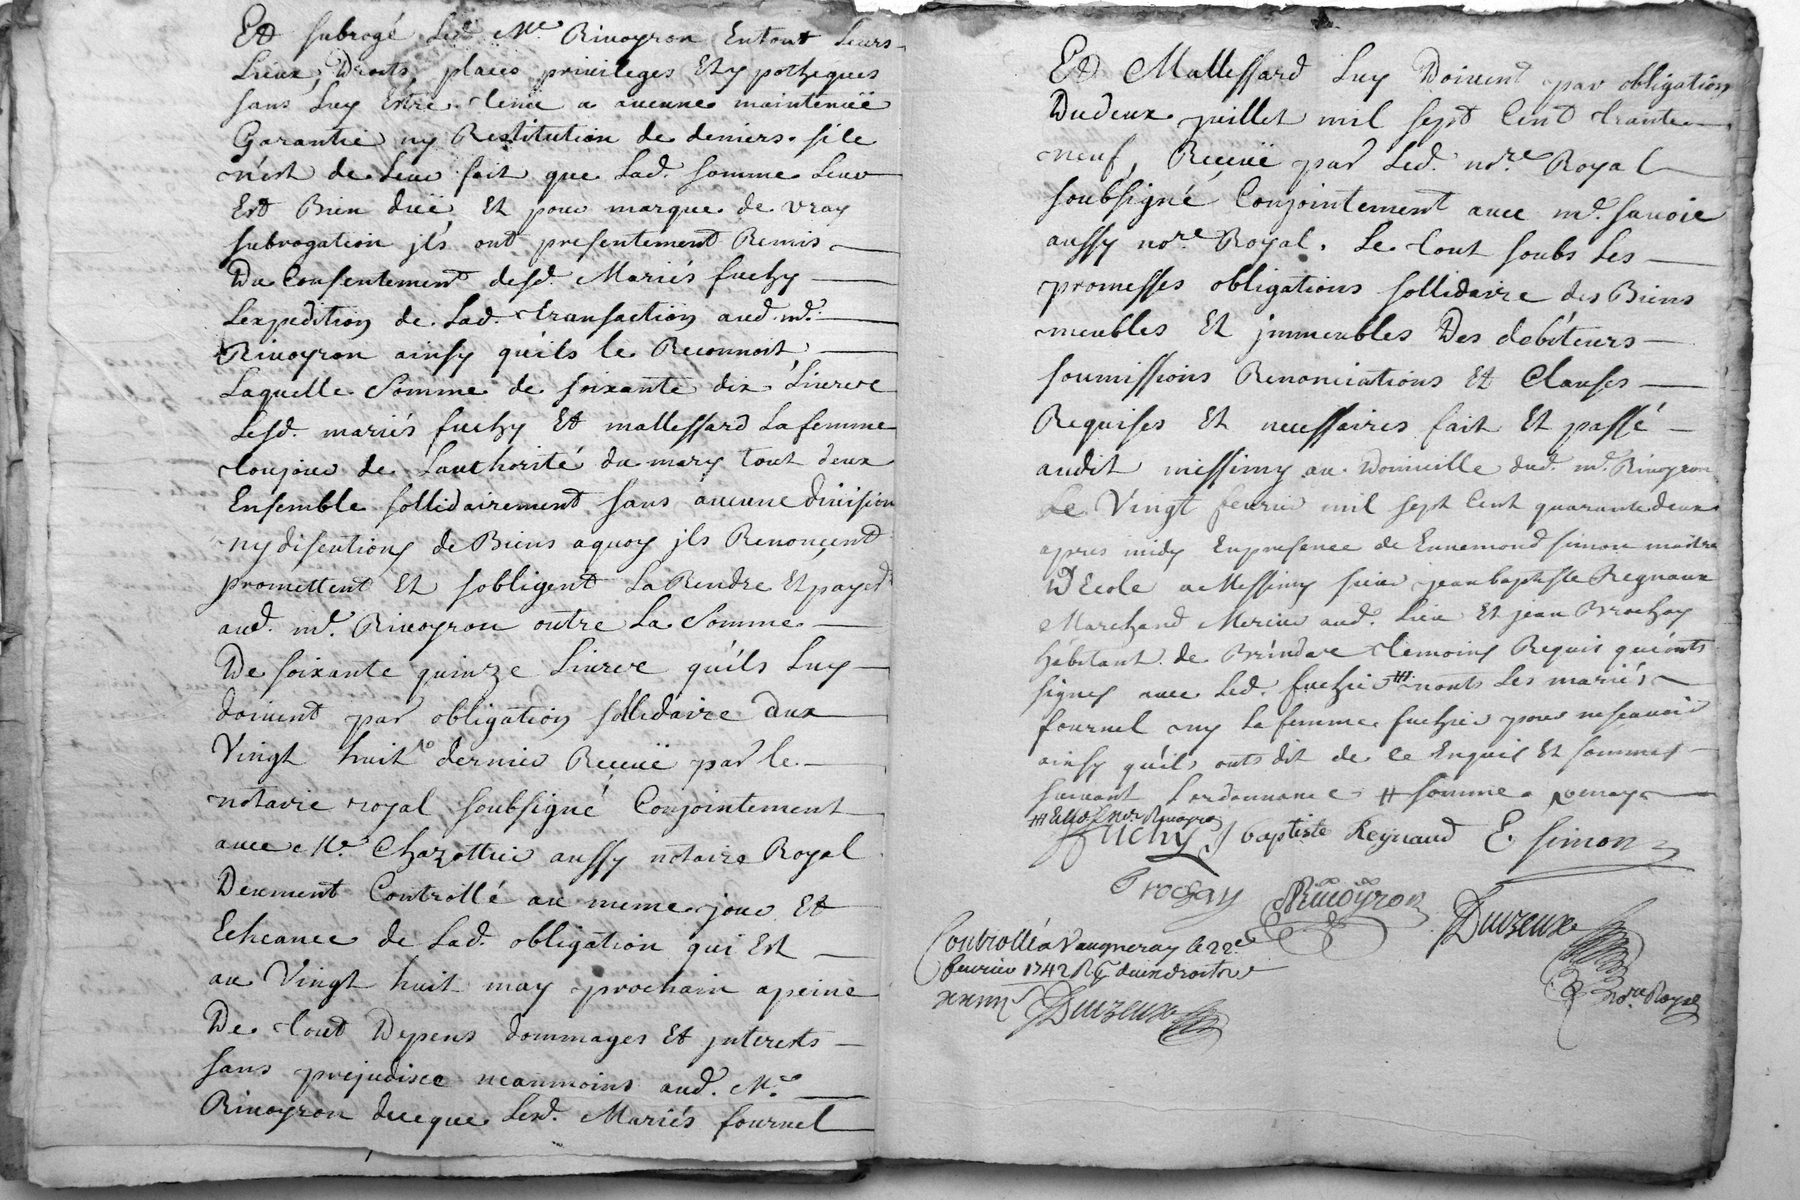 Et subrogé led. Me. Rivoyron Entout Leurs
Lieux, Droits, places privileges Ethypotheques
sans Luy Estre Tenu a aucune maintenuë
Garantie ny Restitution de deniers sile
n'est de Leur fait que Lad. somme Leur
Est Bien duë, Et pour marque de vray
subrogation jls ont presentement Remis
Du Consentement desd. Mariés fuchy
Lexpedition de Lad. transaction aud. md.
Rivoyron ainsy quils le Reconnoit
Laquelle Somme de soixante dix Livres
Lesd. mariés fuchy Et mallessard La femme
toujour de Lauthorité du mary tout deux
Ensemble sollidairement sans aucune division
ny discutiony de Biens aquoy jls Renoncent
promettent Et sobligent La Rendre Et payer
aud. md. Rivoyron outre La Somme
De soixante quinze Livres quils Luy
doivent par obligation sollidaire aux
Vingt huit dernier Recüe par le
notaire royal soubsigné Conjointement
avec Me. Chazottier aussy notaire Royal
Deument Controllé au meme jour Et
Echeance de Lad. obligation qui Est
au Vingt huit may prochain apeine
De tout Depens dommages Et jnterests
sans prejudice neanmoins aud. Me.
Rivoyron dece que Lesd. Mariés fournel
Et Mallessard Luy Doivent par obligation
Dudeux juillet mil sept Cent trante
neuf, Recüe par Led. nore. Royal
soubsigné Conjointement avec md. savoie
aussy nore. Royal. Le tout soubs Les
promesses obligations sollidaire des Biens
meubles Et jmmeubles Des debiteurs
soumissions Renonciations Et Clauses
Requises Et necessaires fait Et passé
audit missimy au Domicille dud. md. Rivoyron
Le Vingt fevrier mil sept Cent quarante deux
apres midy Enpresence de Ennemond simon maitre
D'Ecole a Messimy sieur jean baptiste Regnaux
Marchand Mercier aud. Lieu Et jean Brochay
habitant de Brindare temoins Requis quionts
signes avec Led. fuchier ## nonts Les mariés
fournel ny La femme fuchier pour nesçavoir
ainsy quils onts dit de ce Enquis Et sommes
suivant Lordonnance # somme
Fuchy J baptiste Reynaud E. Simon
Trochay Rivoyron Duizeux
nore. Royal
Controllé a Vaugneray le 22e.
fevrier 1742 R deux droits
Duizeux